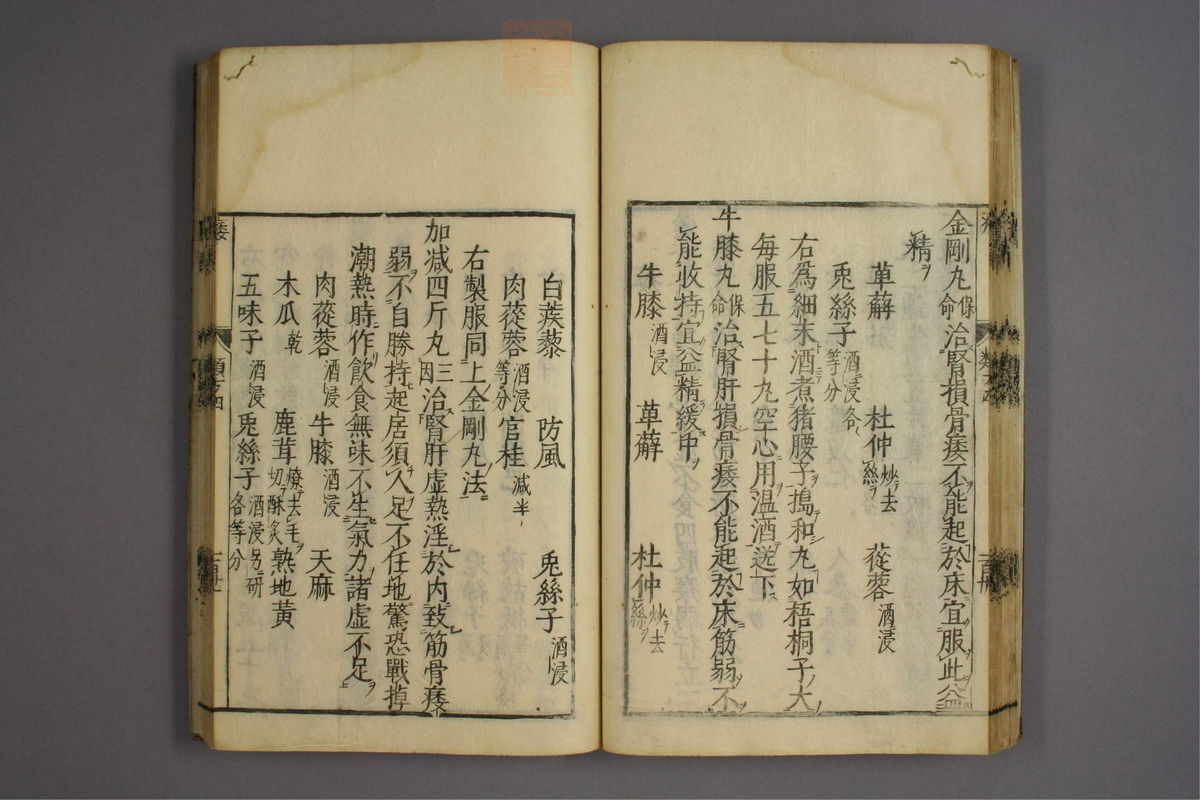 金剛丸保命治腎損骨痿不能起於床宜服此益
精
萆薢　杜仲炒去絲　蓯蓉酒浸
兎絲子酒浸各等分
右爲細末酒煮猪腰子搗和丸如梧桐子大
每服五七十丸空心用溫酒送下
牛膝丸保命治腎肝損骨痿不能起於床筋弱不
能收持宜益精緩中
牛膝酒浸　萆薢　杜仲炒去絲
白蒺藜　防風　兎絲子酒浸
肉蓯蓉酒浸等分　官桂減半
右製服同上金剛丸法
加減四斤丸三因治腎肝虛熱淫於內致筋骨痿
弱不自勝持起居須人足不任地驚恐戰掉
潮熱時作飲食無味不生氣力諸虛不足
肉蓯蓉酒浸　牛膝酒浸　天麻
木瓜乾　鹿茸燎去毛切酥炙　熟地黃
五味子酒浸　兎絲子酒浸另研各等分
痿
類方四